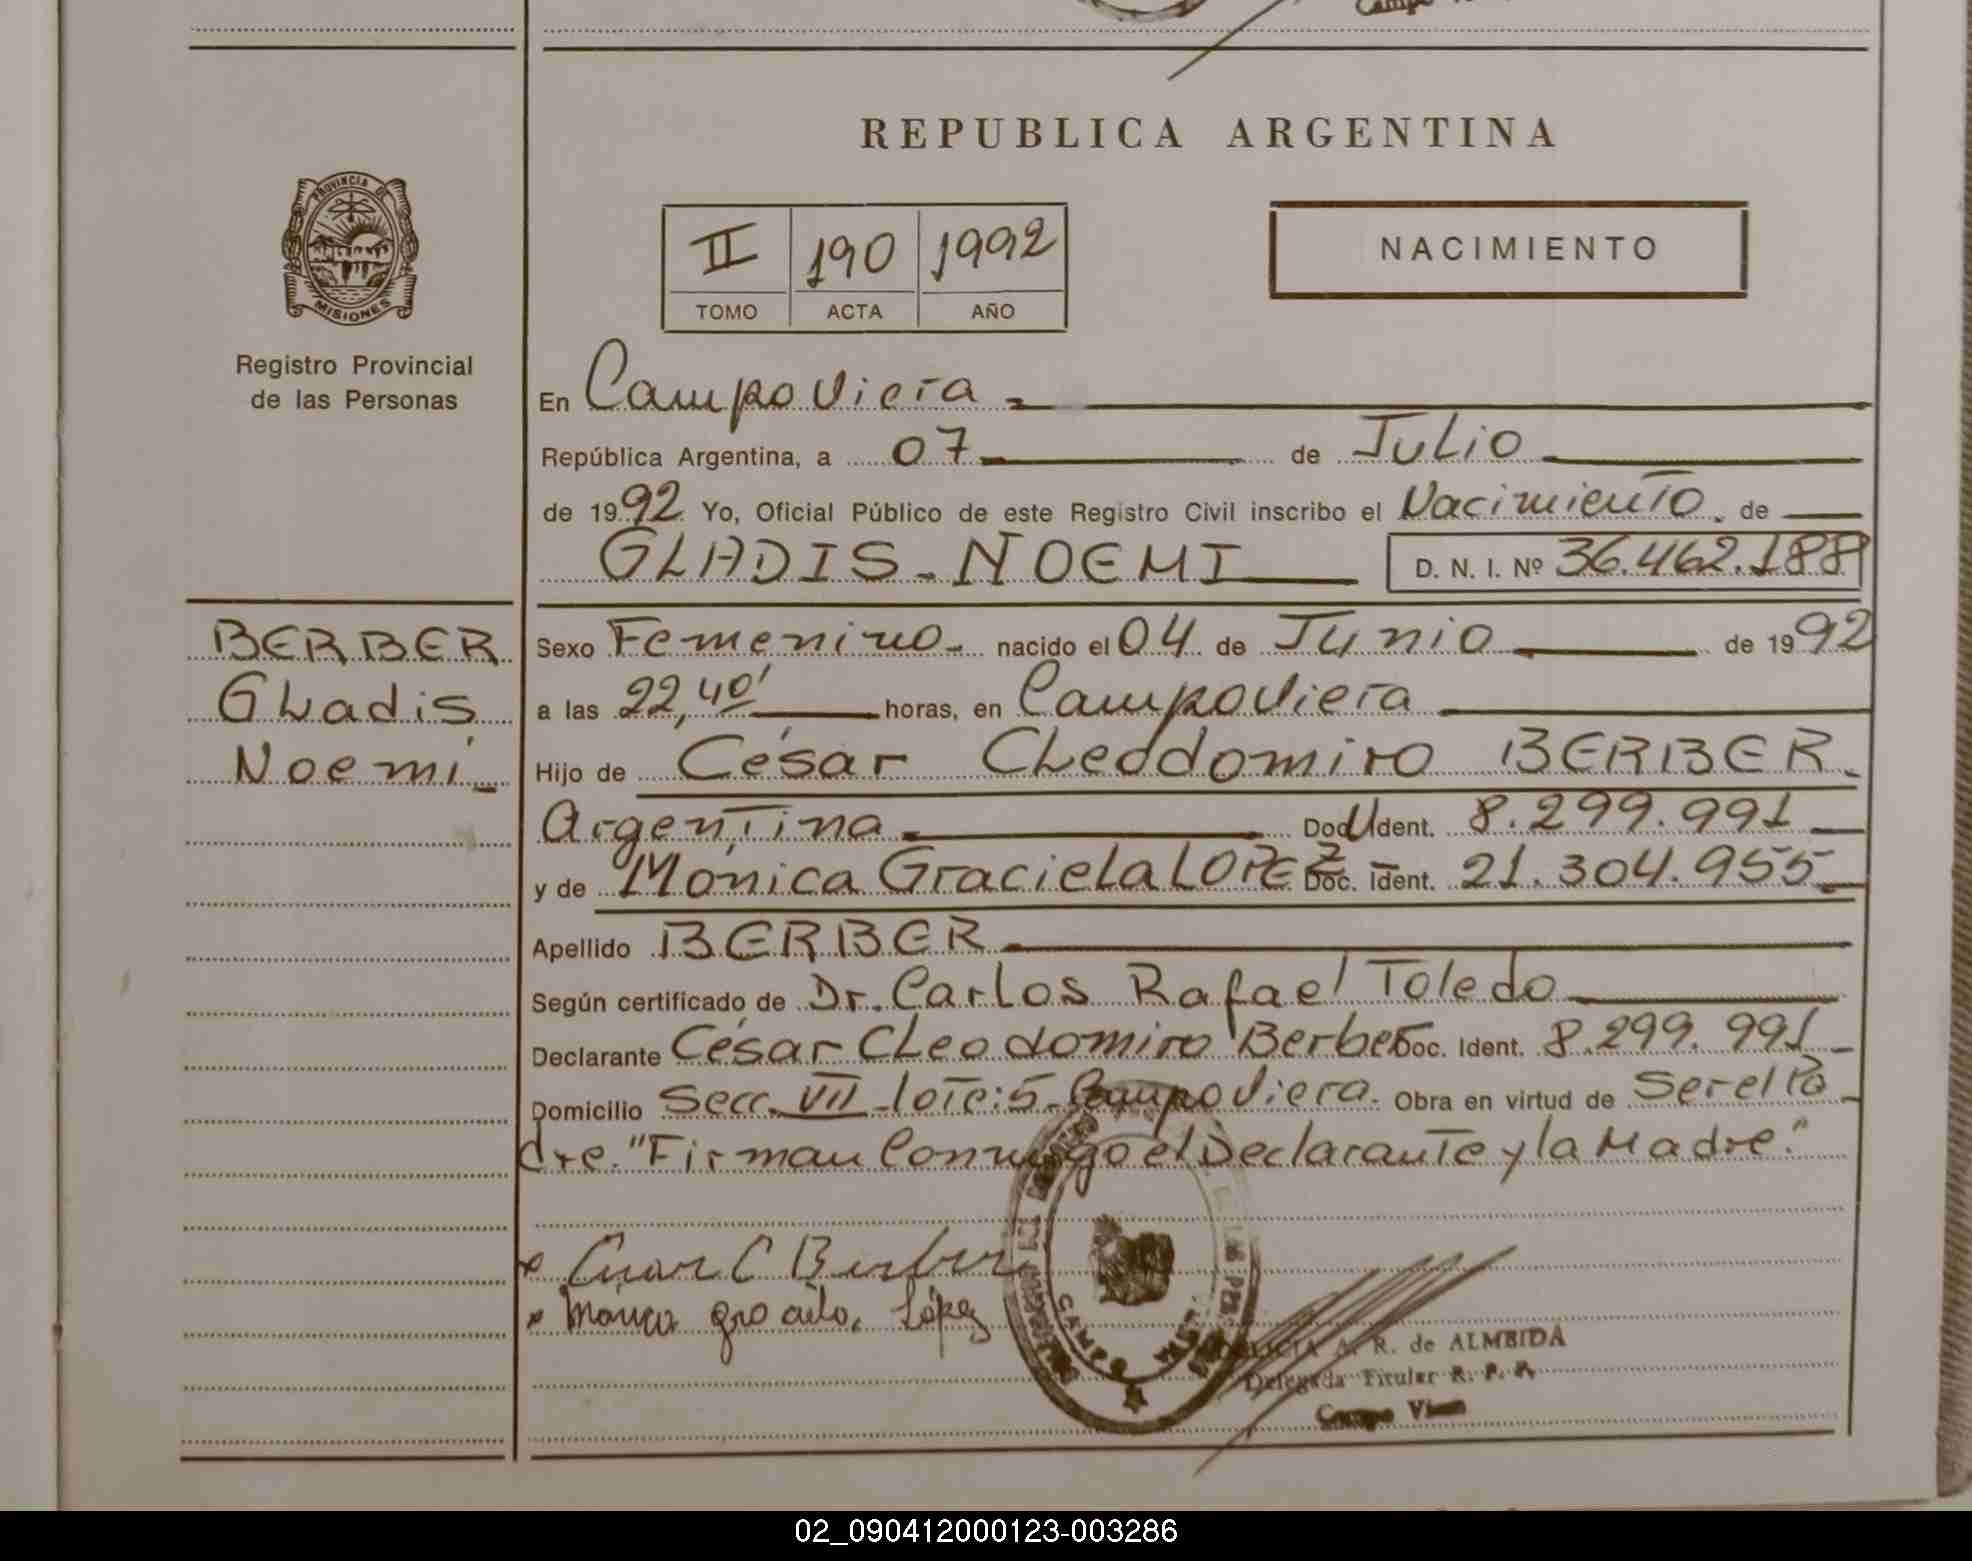 REPUBLICA ARGENTINA
PROVINCIA DE
MISIONES
Registro Provincial
de las Personas
II 190 1992
TOMO ACTA AÑO
NACIMIENTO
En Campo Viera
República Argentina, a 07 de Julio
de 1992 Yo, Oficial Público de este Registro Civil inscribo el Nacimiento. de
GLADIS - NOEMI D. N. I. Nº 36.462.188
BERBER
Gladis
Noemí
Sexo Femenino nacido el 04 de Junio de 1992
a las 22,40' horas, en Campo Viera
Hijo de César Cleodomiro BERBER.
Argentina Doc. U Ident. 8.299.991
y de Mónica Graciela LOPEZ Doc. Ident. 21.304.955
Apellido BERBER
Según certificado de Dr. Carlos Rafael Toledo
Declarante César Cleodomiro Berber Doc. Ident. 8.299.991
Domicilio Secc. VII - lote: 5 - Campo Viera. Obra en virtud de Ser el Pa
dre. "Firman Conmigo el Declarante y la Madre."
C Berber
López
CAMPO
A. R. de ALMEIDA
Delegada Titular R. P. P.
Campo Viera
02_090412000123-003286